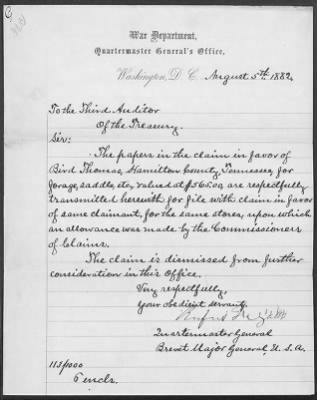 War Department,
Quartermaster General's Office,
Washington, D.C. August 5th, 1882.
To the Third Auditor
Of the Treasury.
Sir:
The papers in the claim in favor of
Bird Thomas, Hamilton County, Tennessee, for
forage, saddle, etc, valued at $565.00, are respectfully
transmitted herewith for file with claim in favor
of same claimant, for the same stores, upon which
an allowance was made by the Commissioners
of Claims.
The claim is dismissed from further
consideration in this Office.
Very respectfully,
Your obedient servant,
Rufus
Quartermaster General
Brevet Major General, U.S.A.
113/1000
6 encls.